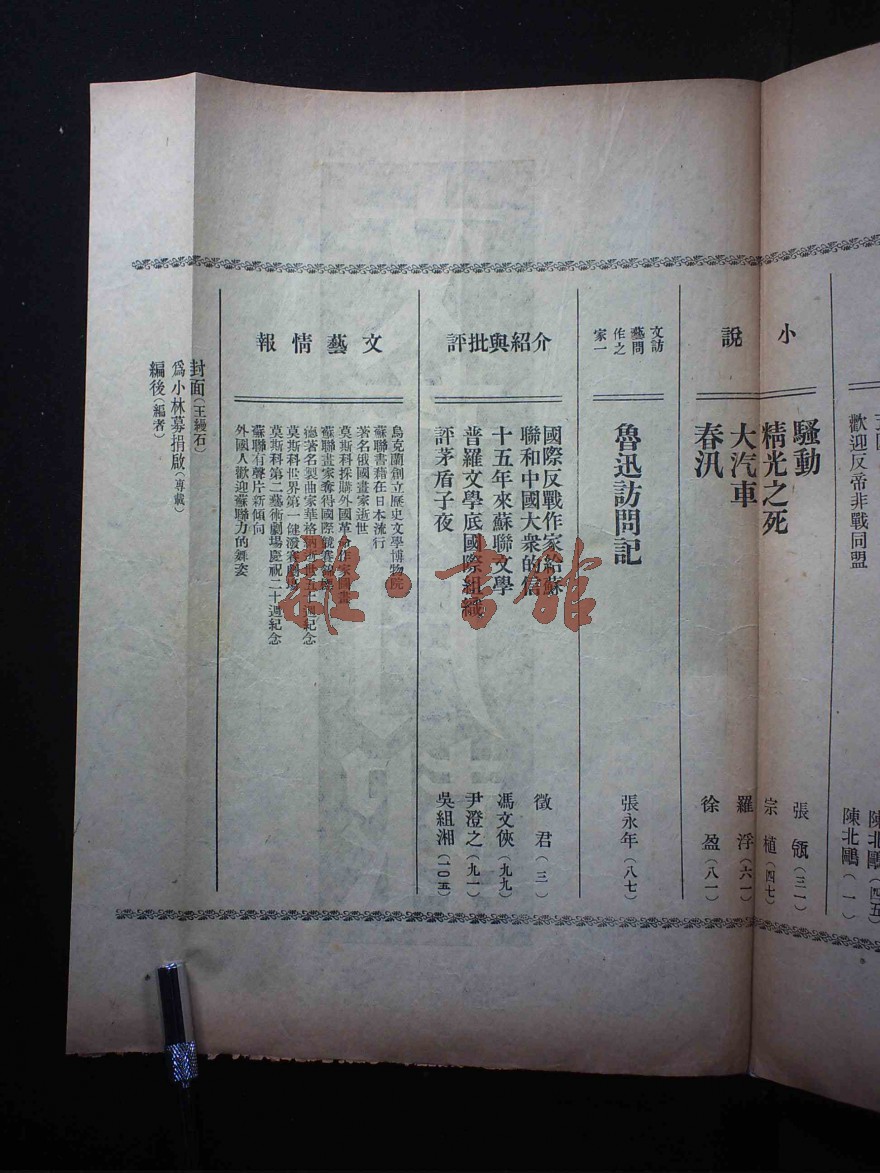 歡迎反帝非戰同盟
陳北鷗(四五)
陳北鷗(一)
小說
騷動 張瓴(三一)
精光之死 宗植(四七)
大汽車 羅浮(六一)
春汎 徐盈(八一)
文藝作家
訪問之一
魯迅訪問記 張永年(八七)
介紹與批評
國際反戰作家給蘇
聯和中國大衆的信 徵君(三)
十五年來蘇聯文學 馮文俠(九九)
普羅文學底國際組織 尹澄之(九一)
評茅盾子夜 吳組湘(一〇五)
文藝情報
烏克蘭創立歷史文學博物院
蘇聯書藉在日本流行
著名俄國畫家逝世
莫斯科採購外國革命作家圖畫
蘇聯畫家奪得國際競賽錦標
德著名製曲家華格納逝世五十週紀念
莫斯科世界第一健潑賽劇場
莫斯科第二藝術劇場慶祝二十週紀念
蘇聯有聲片新傾向
外國人歡迎蘇聯力的舞姿
封面(王鏝石)
爲小林募捐啟(專載)
編後(編者)
雜·書館